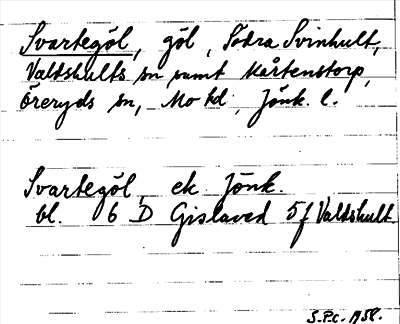 Svartegöl, göl, Södra Svinhult,
Valdshults sn samt Mårtenstorp,
Öreryds sn, Mo hd, Jönk. l.
Svartegöl, ek Jönk.
bl. 6 D Gislaved 5f Valdshult.
S.P.C. 1958.